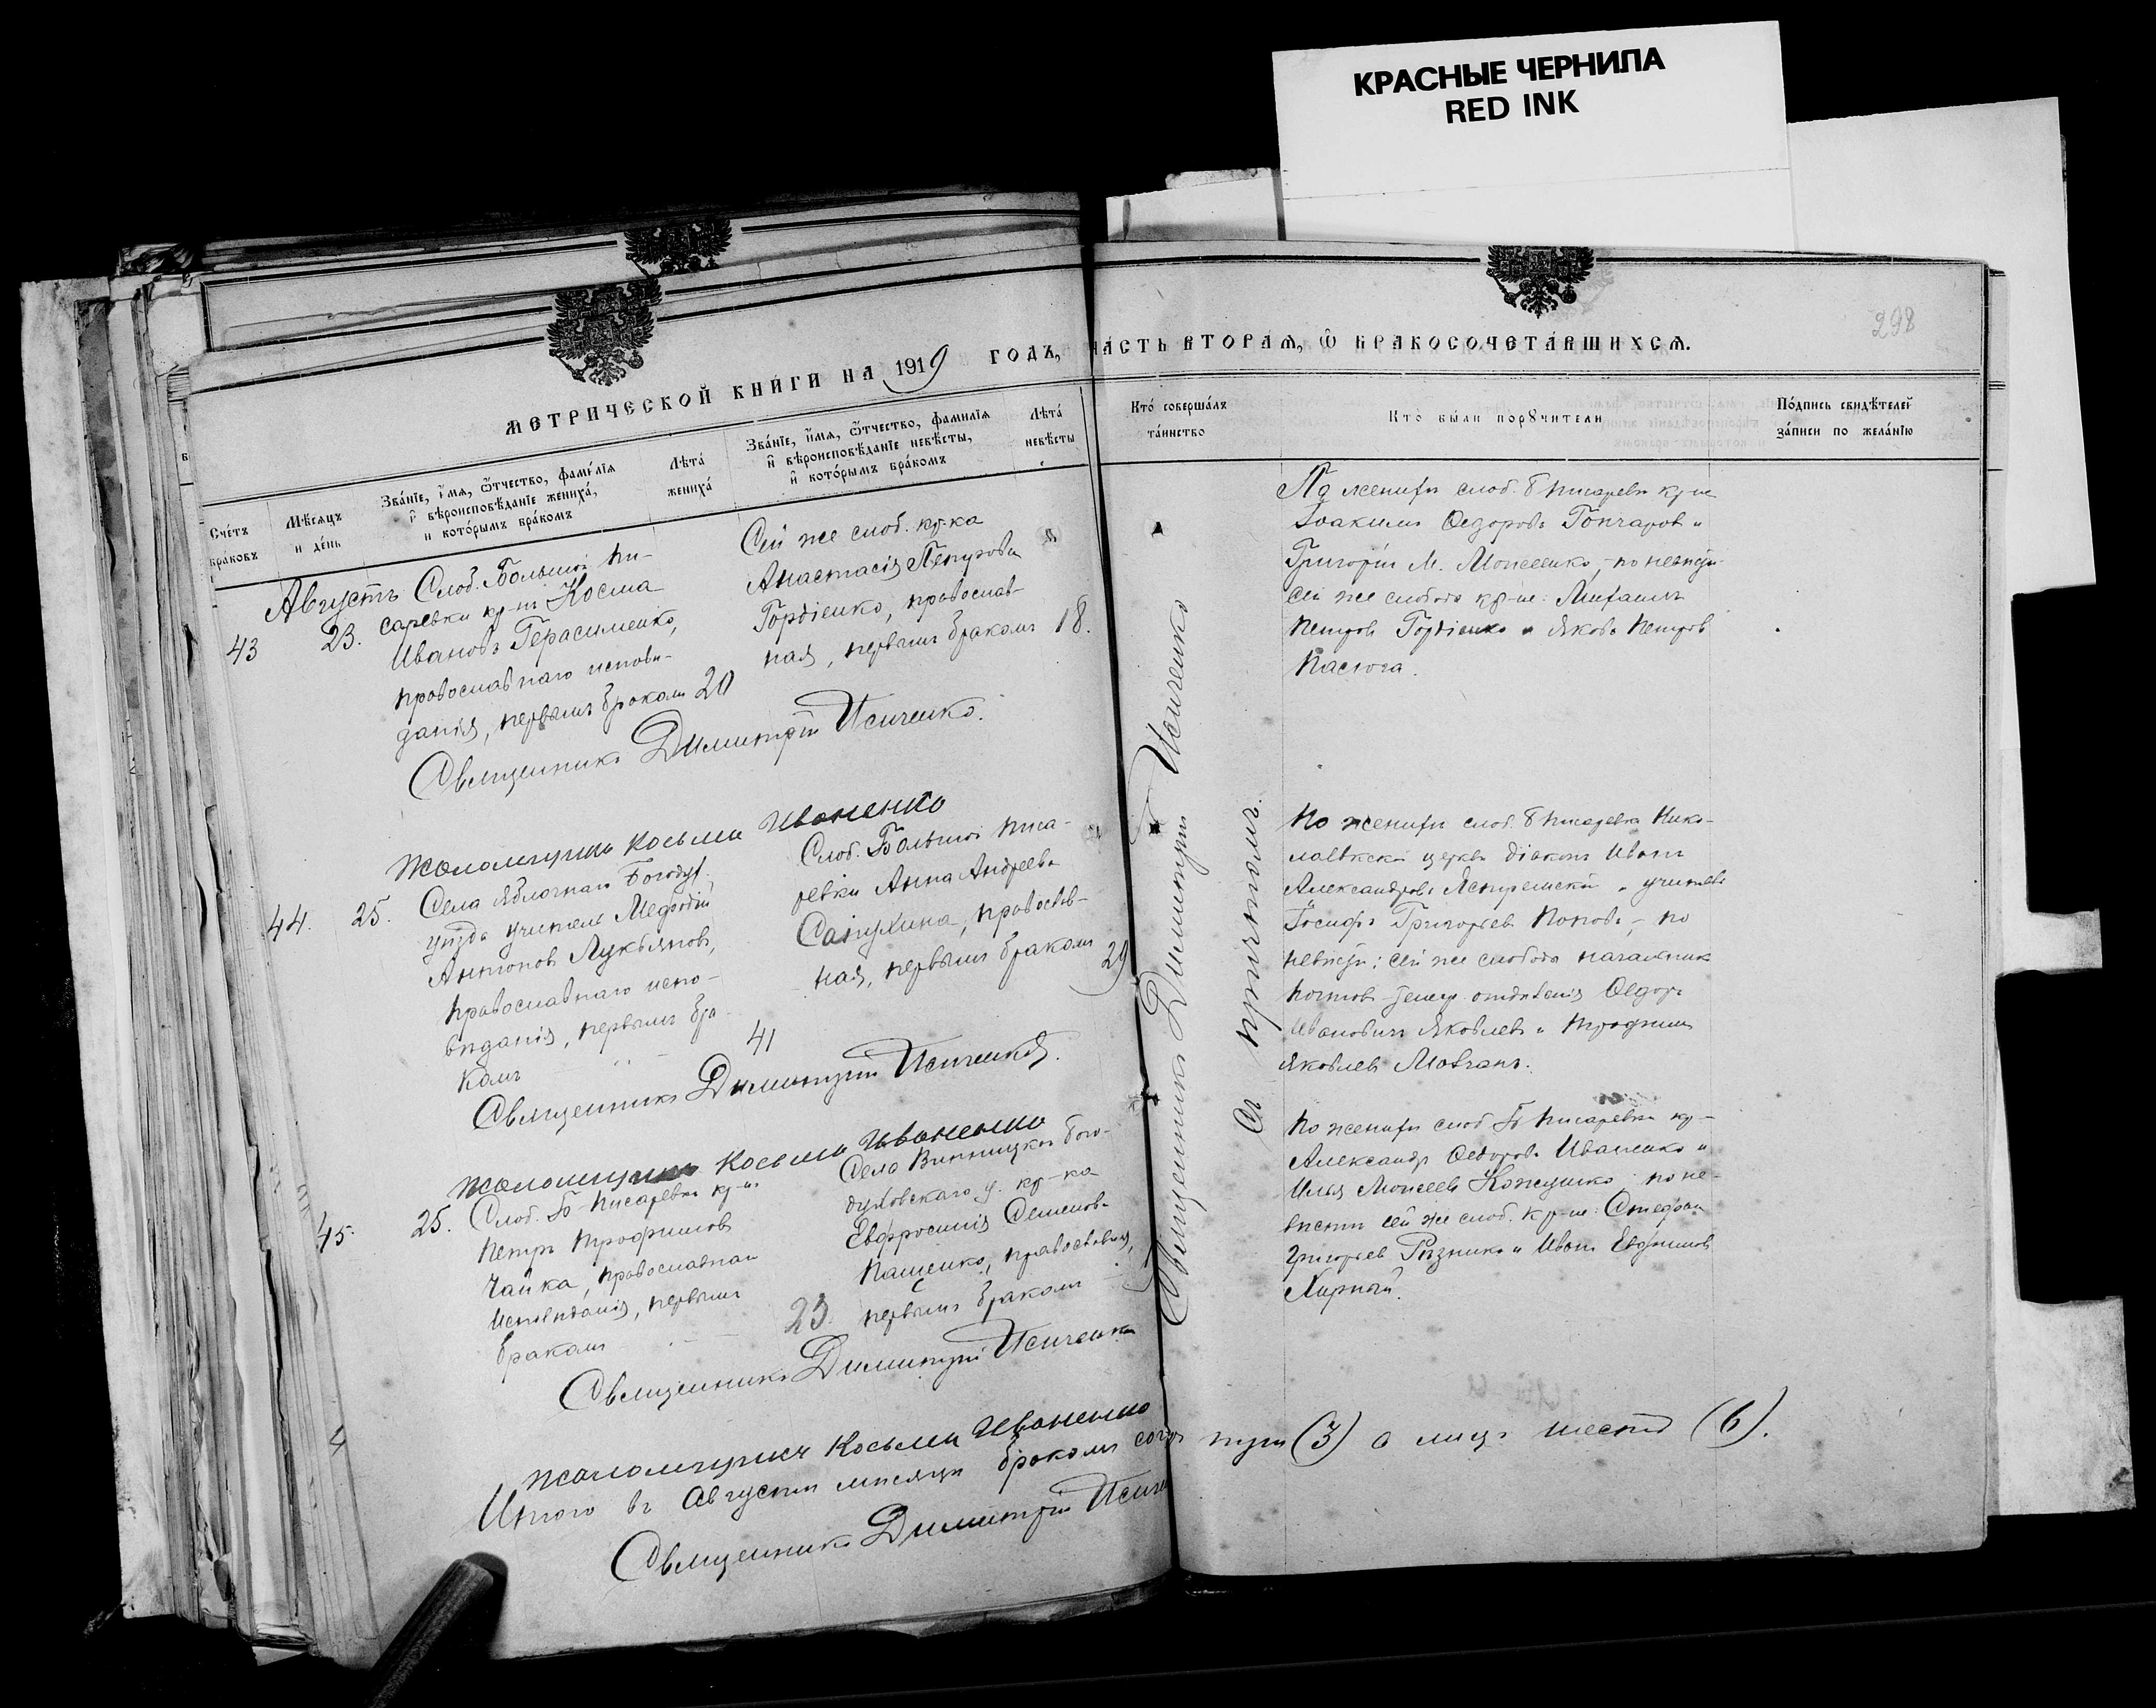 КРАСНЫЕ ЧЕРНИЛА
RED INK
298
МЕТРИЧЕСКОЙ КНИГИ НА 1919 ГОДЪ, ЧАСТЬ ВТОРАЯ, Ѿ БРАКОСОЧЕТАВШИХСЯ.
Счетъ браковъ
Мѣсяцъ и день
Званїе, имя, ѿтчество, фамилїя
и вѣроисповѣданїе жениха,
и которымъ бракомъ
Лѣта жениха
Званїе, имя, ѿтчество, фамилїя
и вѣроисповѣданїе невѣсты,
и которымъ бракомъ
Лѣта невѣсты
Кто совершалъ таинство
Кто были порꙋчители
Подпись свидѣтелей записи по желанїю
Августъ
43
23.
Слоб. Большой Пи-
саревки кр-нъ Косма
Ивановъ Герасименко,
православнаго исповѣ-
данія, первымъ бракомъ 20
Сей же слоб. кр-ка
Анастасія Петрова
Гордіенко, православ-
ная, первымъ бракомъ 18.
Священникъ Димитрій Исиченко.
Косьма Иваненко
По женихѣ слоб. Б Писаревки кр-не
Іоакимъ Ѳедоровъ Гончаровъ и
Григорій М. Моисеенко, по невѣстѣ
сей же слободы кр-не: Михаилъ
Петровъ Гордіенко и Яковъ Петровъ
Пасюга.
44.
25.
Села Яблочнаго Богодух.
уѣзда учитель Меѳодій
Антоновъ Лукьяновъ,
православнаго испо-
вѣданія, первымъ бра-
комъ 41
Слоб. Большой Писа-
ревки Анна Андреева
православ-
ная, первымъ бракомъ 29
Священникъ Димитрій Исиченко.
Косьма Иваненко
По женихѣ слоб. Б Писаревки Нико-
лаевской церкви діаконъ Иванъ
Александровъ и учитель
Іосифъ Григорьевъ Поповъ, по
невѣстѣ: сей же слободы начальникъ
почтов-телегр. отдѣленія Ѳедоръ
Ивановичъ Яковлевъ и Трофимъ
Яковлевъ Мовчанъ.
45.
25.
Слоб. Б-Писаревки кр-нъ
Петръ Трофимовъ
Чайка, православнаго
исповѣданія, первымъ
бракомъ 23.
Села Винницкихъ Бого-
духовскаго у. кр-ка
Евфросинія Семенова
Пащенко, православная,
первымъ бракомъ
Священникъ Димитрій Исиченко
Косьма Иваненко
По женихѣ слоб Б Писаревки кр-
Александръ Ѳедоровъ Иваненко и
Илья Моисеевъ по не-
вѣстѣ сей же слоб. кр-не: Стефанъ
Григорьевъ Рѣзникъ и Иванъ Евфимовъ
Хирный.
Священникъ Димитрій Исиченко
Съ причтомъ.
Итого въ Августѣ мѣсяцѣ бракомъ (3) а лицъ шесть (6).
Священникъ Димитрій